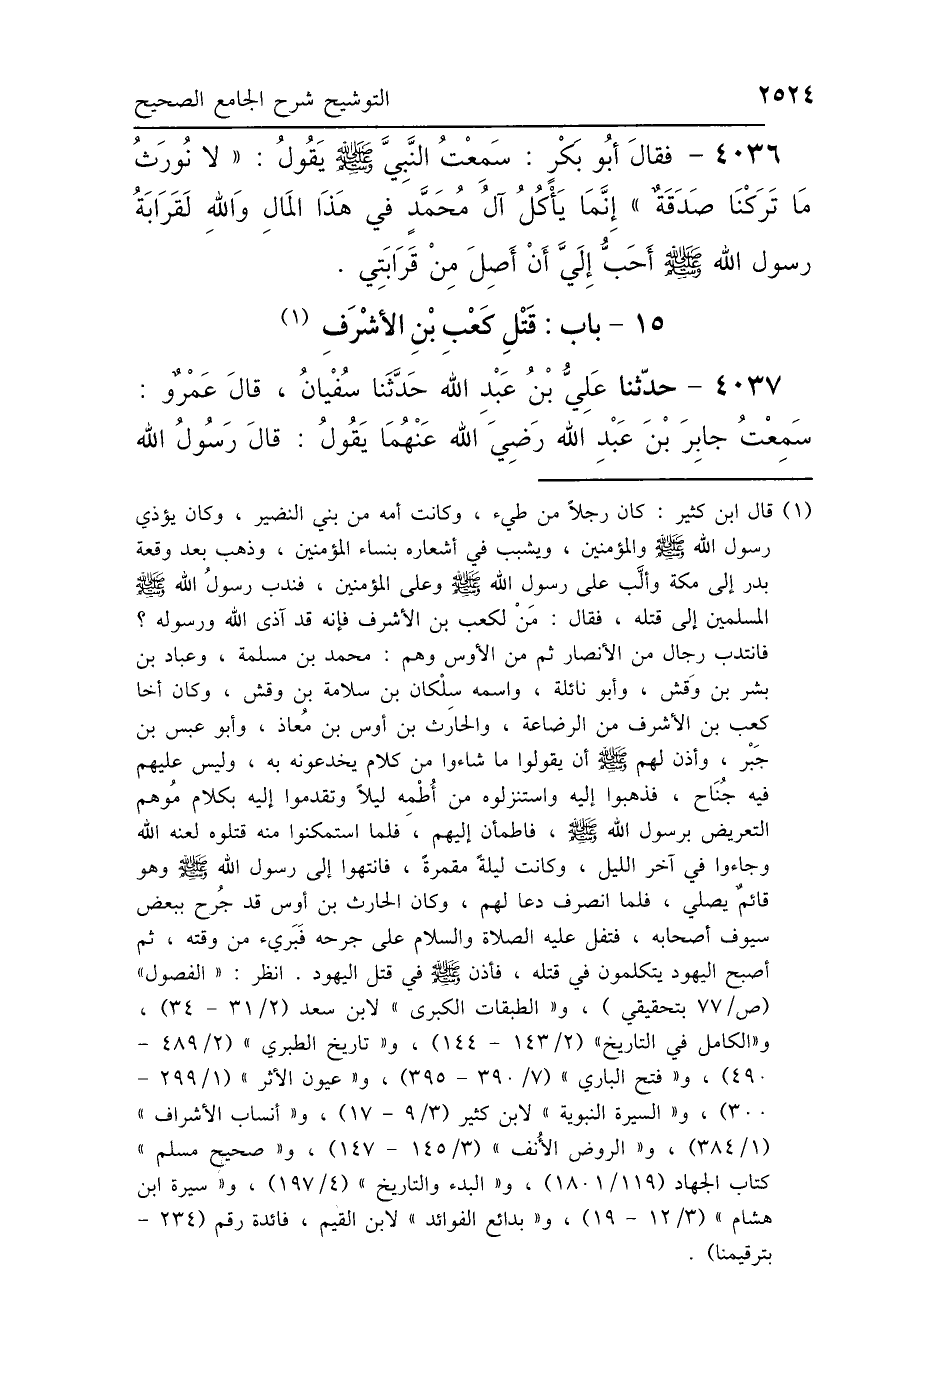 ٢٥٢٤ التوشيح شرح الجامع الصحيح
٤٠٣٦ - فقالَ أَبُو بَكْرٍ : سَمِعْتُ النَّبِيَّ ﷺ يَقُولُ : « لا نُورَثُ
مَا تَرَكْنَا صَدَقَةٌ » إِنَّمَا يَأْكُلُ آلُ مُحَمَّدٍ في هَذَا المَالِ وَاللهِ لَقَرَابَةُ
رسول الله ﷺ أَحَبُّ إِلَيَّ أَنْ أَصِلَ مِنْ قَرَابَتِي .
١٥ - باب : قَتْلِ كَعْبِ بْنِ الأَشْرَفِ (١)
٤٠٣٧ - حدّثنا عَلِيُّ بْنُ عَبْدِ الله حَدَّثَنا سُفْيانُ ، قالَ عَمْرٌو :
سَمِعْتُ جابِرَ بْنَ عَبْدِ الله رَضِيَ الله عَنْهُمَا يَقُولُ : قالَ رَسُولُ الله
(١) قال ابن كثير : كان رجلاً من طيء ، وكانت أمه من بني النضير ، وكان يؤذي
رسول الله ﷺ والمؤمنين ، ويشبب في أشعاره بنساء المؤمنين ، وذهب بعد وقعة
بدر إلى مكة وألَّب على رسول الله ﷺ وعلى المؤمنين ، فندب رسولُ الله ﷺ
المسلمين إلى قتله ، فقال : مَنْ لكعب بن الأشرف فإنه قد آذى الله ورسوله ؟
فانتدب رجال من الأنصار ثم من الأوس وهم : محمد بن مسلمة ، وعباد بن
بشر بن وَقش ، وأبو نائلة ، واسمه سلِكان بن سلامة بن وقش ، وكان أخا
كعب بن الأشرف من الرضاعة ، والحارث بن أوس بن مُعاذ ، وأبو عبس بن
جَبْر ، وأذن لهم ﷺ أن يقولوا ما شاءوا من كلام يخدعونه به ، وليس عليهم
فيه جُنَاح ، فذهبوا إليه واستنزلوه من أُطْمِه ليلاً وتقدموا إليه بكلام مُوهم
التعريض برسول الله ﷺ ، فاطمأن إليهم ، فلما استمكنوا منه قتلوه لعنه الله
وجاءوا في آخر الليل ، وكانت ليلةً مقمرةً ، فانتهوا إلى رسول الله ﷺ وهو
قائمٌ يصلي ، فلما انصرف دعا لهم ، وكان الحارث بن أوس قد جُرح ببعض
سيوف أصحابه ، فتفل عليه الصلاة والسلام على جرحه فَبَريء من وقته ، ثم
أصبح اليهود يتكلمون في قتله ، فأذن ﷺ في قتل اليهود . انظر : « الفصول»
(ص/٧٧ بتحقيقي ) ، و« الطبقات الكبرى » لابن سعد (٣١/٢ - ٣٤) ،
و«الكامل في التاريخ» (١٤٣/٢ - ١٤٤) ، و« تاريخ الطبري » (٤٨٩/٢ -
٤٩٠) ، و« فتح الباري » (٣٩٠/٧ - ٣٩٥) ، و« عيون الأثر » (٢٩٩/١ -
٣٠٠) ، و« السيرة النبوية » لابن كثير (٩/٣ - ١٧) ، و« أنساب الأشراف »
(٣٨٤/١) ، و« الروض الأُنف » (١٤٥/٣ - ١٤٧) ، و« صحيح مسلم »
كتاب الجهاد (١٨٠١/١١٩) ، و« البدء والتاريخ » (١٩٧/٤) ، و« سيرة ابن
هشام » (١٢/٣ - ١٩) ، و« بدائع الفوائد » لابن القيم ، فائدة رقم (٢٣٤ -
بترقيمنا) .